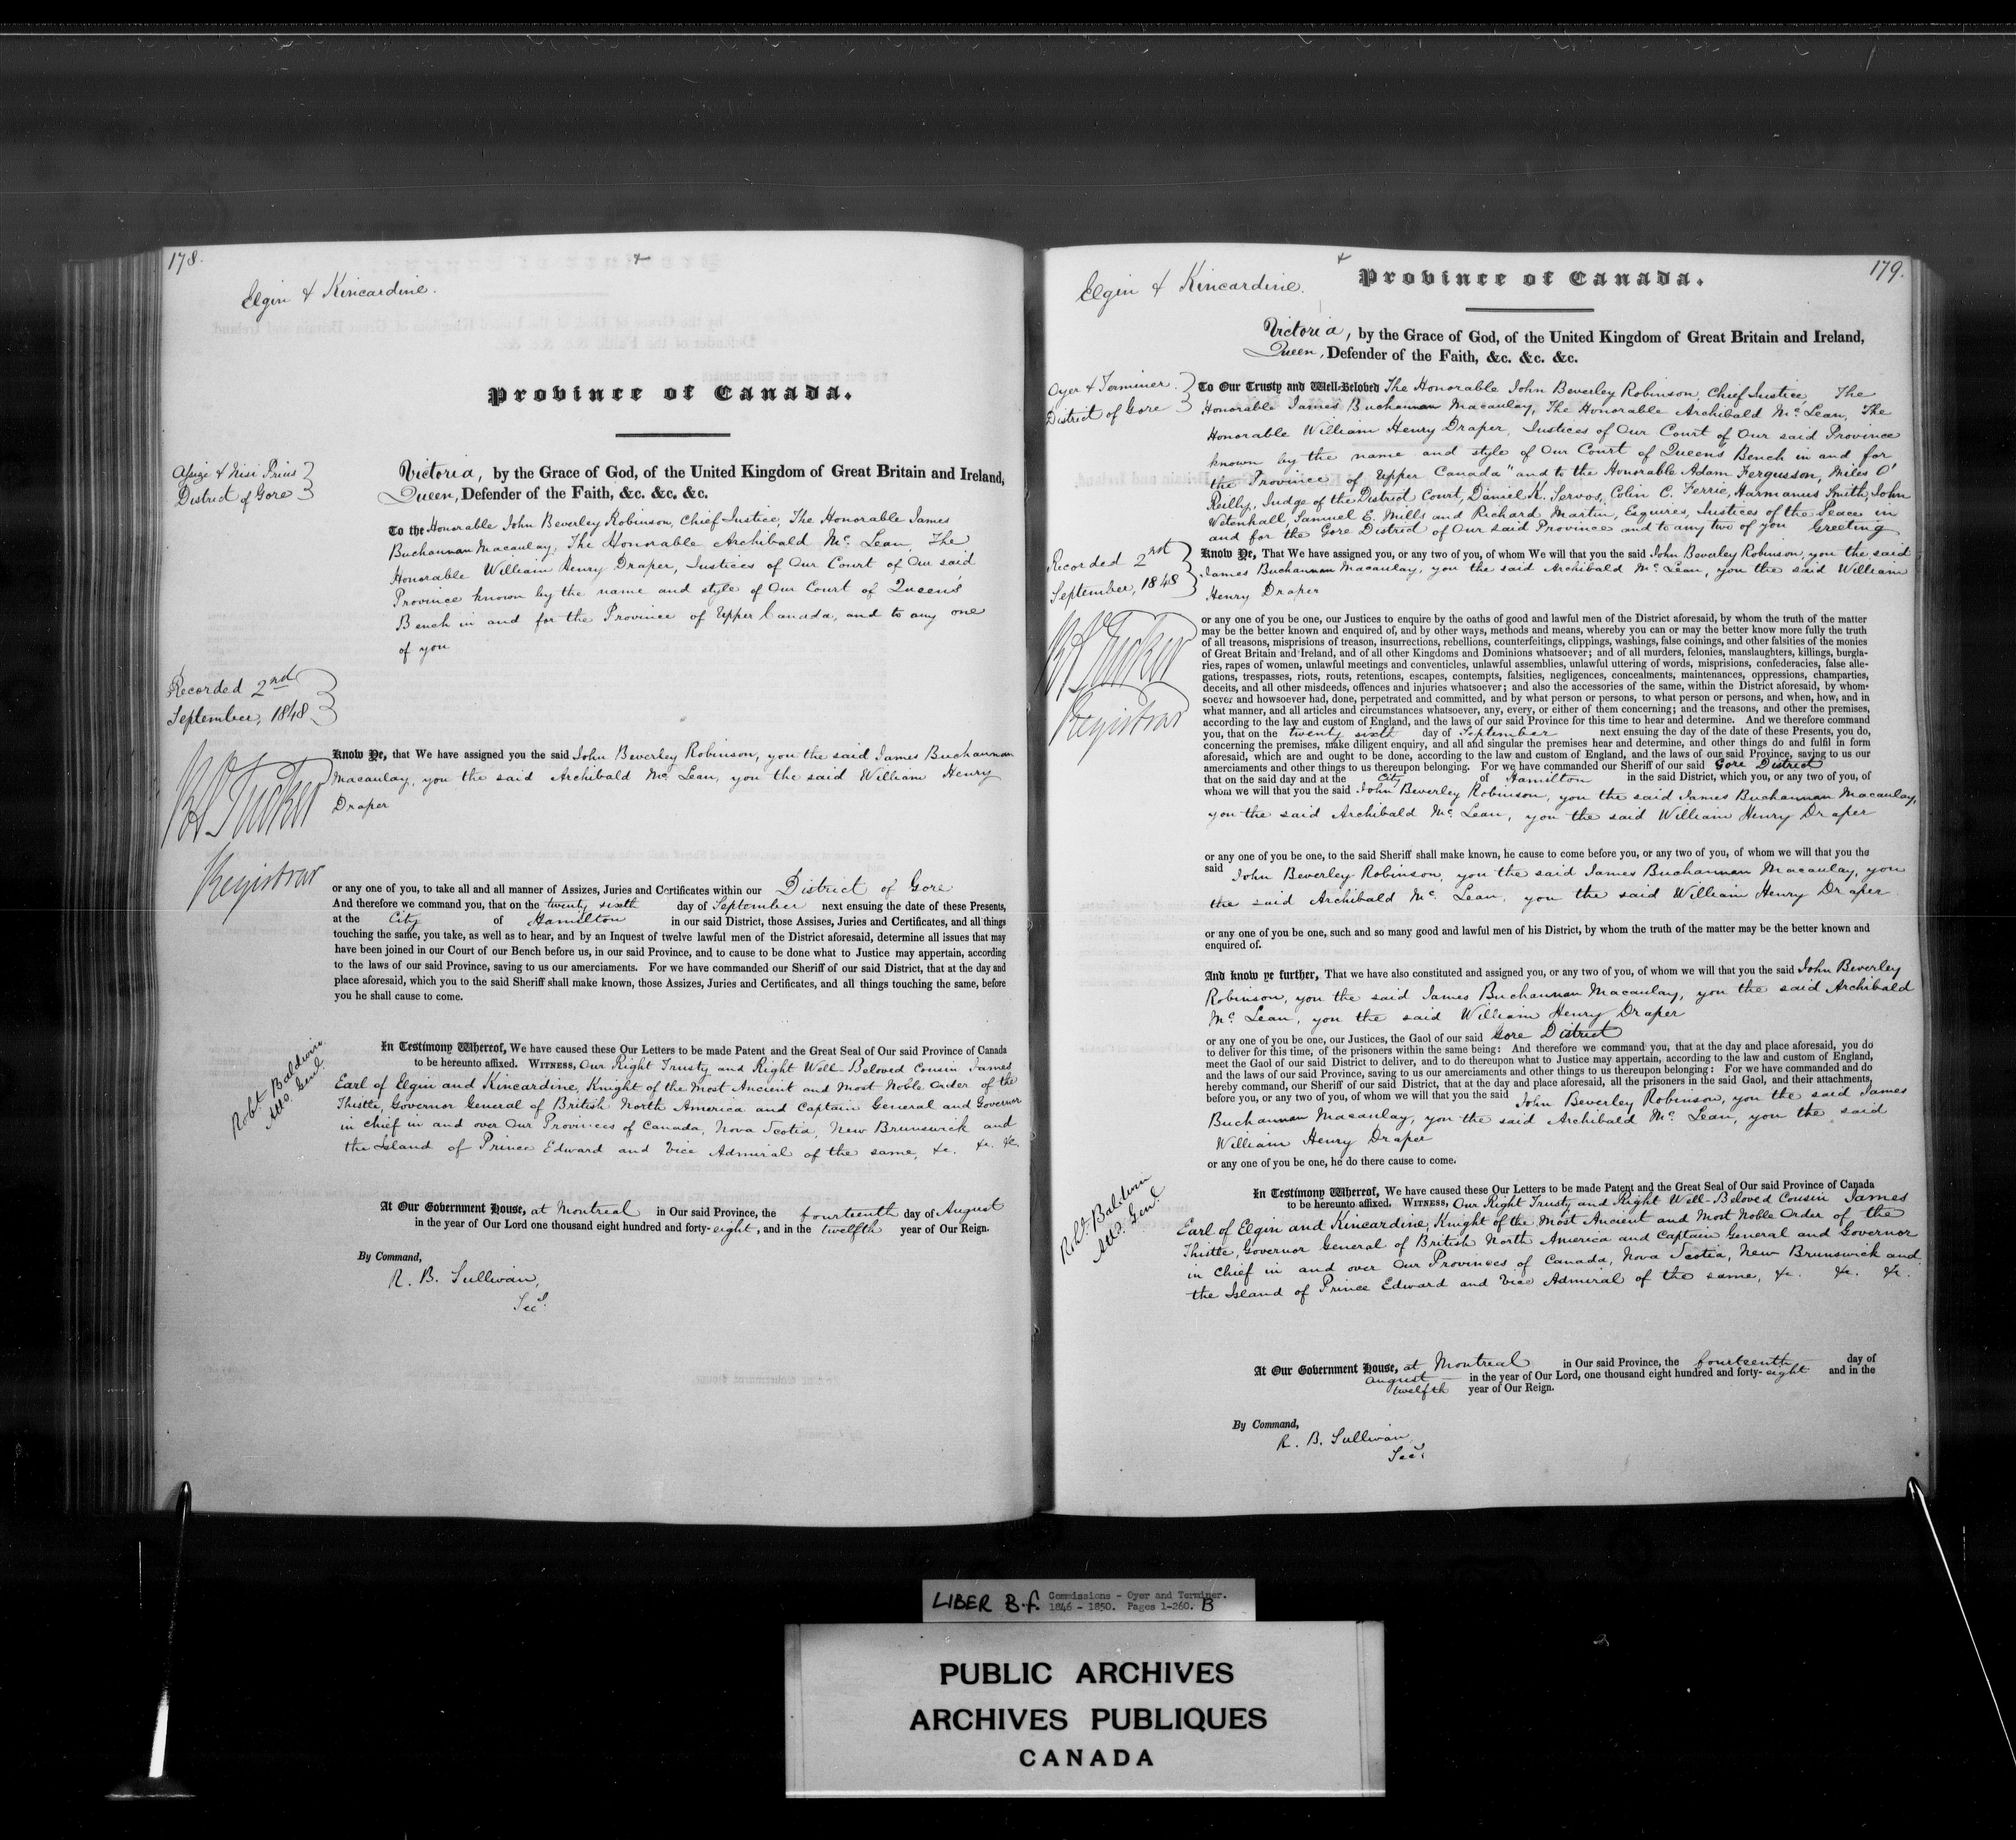 178.
Elgin & Kincardine.
Province of Canada.
Assize & Nisi Prius
District of Gore
Victoria, by the Grace of God, of the United Kingdom of Great Britain and Ireland,
Queen, Defender of the Faith, &c. &c. &c.
To the Honorable John Beverley Robinson, Chief Justice, The Honorable James
Buchannan Macaulay, The Honorable Archibald Mc Lean, The
Honorable William Henry Draper, Justices of Our Court of Our said
Province known by the name and style of Our Court of Queen's
Bench in and for the Province of Upper Canada, and to any one
of you
Recorded 2nd
September, 1848
RATucker
Registrar
Know Ye, that We have assigned you the said John Beverley Robinson, you the said James Buchannan
Macaulay, you the said Archibald Mc Lean, you the said William Henry
Draper
or any one of you, to take all and all manner of Assizes, Juries and Certificates within our District of Gore
And therefore we command you, that on the twenty sixth day of September next ensuing the date of these Presents,
at the City of Hamilton in our said District, those Assises, Juries and Certificates, and all things
touching the same, you take, as well as to hear, and by an Inquest of twelve lawful men of the District aforesaid, determine all issues that may
have been joined in our Court of our Bench before us, in our said Province, and to cause to be done what to Justice may appertain, according
to the laws of our said Province, saving to us our amerciaments. For we have commanded our Sheriff of our said District, that at the day and
place aforesaid, which you to the said Sheriff shall make known, those Assizes, Juries and Certificates, and all things touching the same, before
you he shall cause to come.
Robt. Baldwin
Atto. Genl.
In Testimony Whereof, We have caused these Our Letters to be made Patent and the Great Seal of Our said Province of Canada
to be hereunto affixed. WITNESS, Our Right Trusty and Right Well-Beloved Cousin James
Earl of Elgin and Kincardine, Knight of the Most Ancient and Most Noble Order of the
Thistle, Governor General of British North America and Captain General and Governor
in chief in and over Our Provinces of Canada, Nova Scotia, New Brunswick and
the Island of Prince Edward and Vice Admiral of the same, &c. &c. &c.
At Our Government House, at Montreal in Our said Province, the fourteenth day of August
in the year of Our Lord one thousand eight hundred and forty-eight, and in the twelfth year of Our Reign.
By Command,
R. B. Sullivan,
Secy.
179.
Elgin & Kincardine.
Province of Canada.
Victoria, by the Grace of God, of the United Kingdom of Great Britain and Ireland,
Queen, Defender of the Faith, &c. &c. &c.
Oyer & Terminer
District of Gore
To Our Trusty and Well-Beloved The Honorable John Beverley Robinson, Chief Justice, The
Honorable James Buchannan Macaulay, The Honorable Archibald Mc Lean, The
Honorable William Henry Draper, Justices of Our Court of Our said Province
known by the name and style of Our Court of Queen's Bench in and for
the Province of Upper Canada" and to the Honorable Adam Fergusson, Miles O'
Reilly, Judge of the District Court, Daniel K. Servos, Colin C. Ferrie, Harmanus Smith, John
Wetenhall, Samuel E. Mills and Richard Martin, Esquires, Justices of the Peace in
and for the Gore District of Our said Province and to any two of you Greeting
Recorded 2nd
September, 1848
RATucker
Registrar
Know Ye, That We have assigned you, or any two of you, of whom We will that you the said John Beverley Robinson, you the said
James Buchannan Macaulay, you the said Archibald Mc Lean, you the said William
Henry Draper
or any one of you be one, our Justices to enquire by the oaths of good and lawful men of the District aforesaid, by whom the truth of the matter
may be the better known and enquired of, and by other ways, methods and means, whereby you can or may the better know more fully the truth
of all treasons, misprisions of treason, insurrections, rebellions, counterfeitings, clippings, washings, false coinings, and other falsities of the monies
of Great Britain and Ireland, and of all other Kingdoms and Dominions whatsoever; and of all murders, felonies, manslaughters, killings, burgla-
ries, rapes of women, unlawful meetings and conventicles, unlawful assemblies, unlawful uttering of words, misprisions, confederacies, false alle-
gations, trespasses, riots, routs, retentions, escapes, contempts, falsities, negligences, concealments, maintenances, oppressions, champarties,
deceits, and all other misdeeds, offences and injuries whatsoever; and also the accessories of the same, within the District aforesaid, by whom-
soever and howsoever had, done, perpetrated and committed, and by what person or persons, to what person or persons, and when, how, and in
what manner, and all articles and circumstances whatsoever, any, every, or either of them concerning; and the treasons, and other the premises,
according to the law and custom of England, and the laws of our said Province for this time to hear and determine. And we therefore command
you, that on the twenty sixth day of September next ensuing the day of the date of these Presents, you do,
concerning the premises, make diligent enquiry, and all and singular the premises hear and determine, and other things do and fulfil in form
aforesaid, which are and ought to be done, according to the law and custom of England, and the laws of our said Province, saving to us our
amerciaments and other things to us thereupon belonging. For we have commanded our Sheriff of our said Gore District
that on the said day and at the City of Hamilton in the said District, which you, or any two of you, of
whom we will that you the said John Beverley Robinson, you the said James Buchannan Macaulay,
you the said Archibald Mc Lean, you the said William Henry Draper
or any one of you be one, to the said Sheriff shall make known, he cause to come before you, or any two of you, of whom we will that you the
said John Beverley Robinson, you the said James Buchannan Macaulay, you
the said Archibald Mc Lean, you the said William Henry Draper
or any one of you be one, such and so many good and lawful men of his District, by whom the truth of the matter may be the better known and
enquired of.
And know ye further, That we have also constituted and assigned you, or any two of you, of whom we will that you the said John Beverley
Robinson, you the said James Buchannan Macaulay, you the said Archibald
Mc Lean, you the said William Henry Draper
or any one of you be one, our Justices, the Gaol of our said Gore District
to deliver for this time, of the prisoners within the same being: And therefore we command you, that at the day and place aforesaid, you do
meet the Gaol of our said District to deliver, and to do thereupon what to Justice may appertain, according to the law and custom of England,
and the laws of our said Province, saving to us our amerciaments and other things to us thereupon belonging: For we have commanded and do
hereby command, our Sheriff of our said District, that at the day and place aforesaid, all the prisoners in the said Gaol, and their attachments,
before you, or any two of you, of whom we will that you the said John Beverley Robinson, you the said James
Buchannan Macaulay, you the said Archibald Mc Lean, you the said
William Henry Draper
or any one of you be one, he do there cause to come.
Robt. Baldwin
Atto. Genl.
In Testimony Whereof, We have caused these Our Letters to be made Patent and the Great Seal of Our said Province of Canada
to be hereunto affixed. WITNESS, Our Right Trusty and Right Well-Beloved Cousin James
Earl of Elgin and Kincardine, Knight of the Most Ancient and Most Noble Order of the
Thistle, Governor General of British North America and Captain General and Governor
in Chief in and over Our Provinces of Canada, Nova Scotia, New Brunswick and
the Island of Prince Edward and Vice Admiral of the same, &c. &c. &c.
At Our Government House, at Montreal in Our said Province, the fourteenth day of
August in the year of Our Lord, one thousand eight hundred and forty-eight and in the
twelfth year of Our Reign.
By Command,
R. B. Sullivan,
Secy.
LIBER B.f. Commissions - Oyer and Terminer.
1846 - 1850. Pages 1-260. B
PUBLIC ARCHIVES
ARCHIVES PUBLIQUES
CANADA